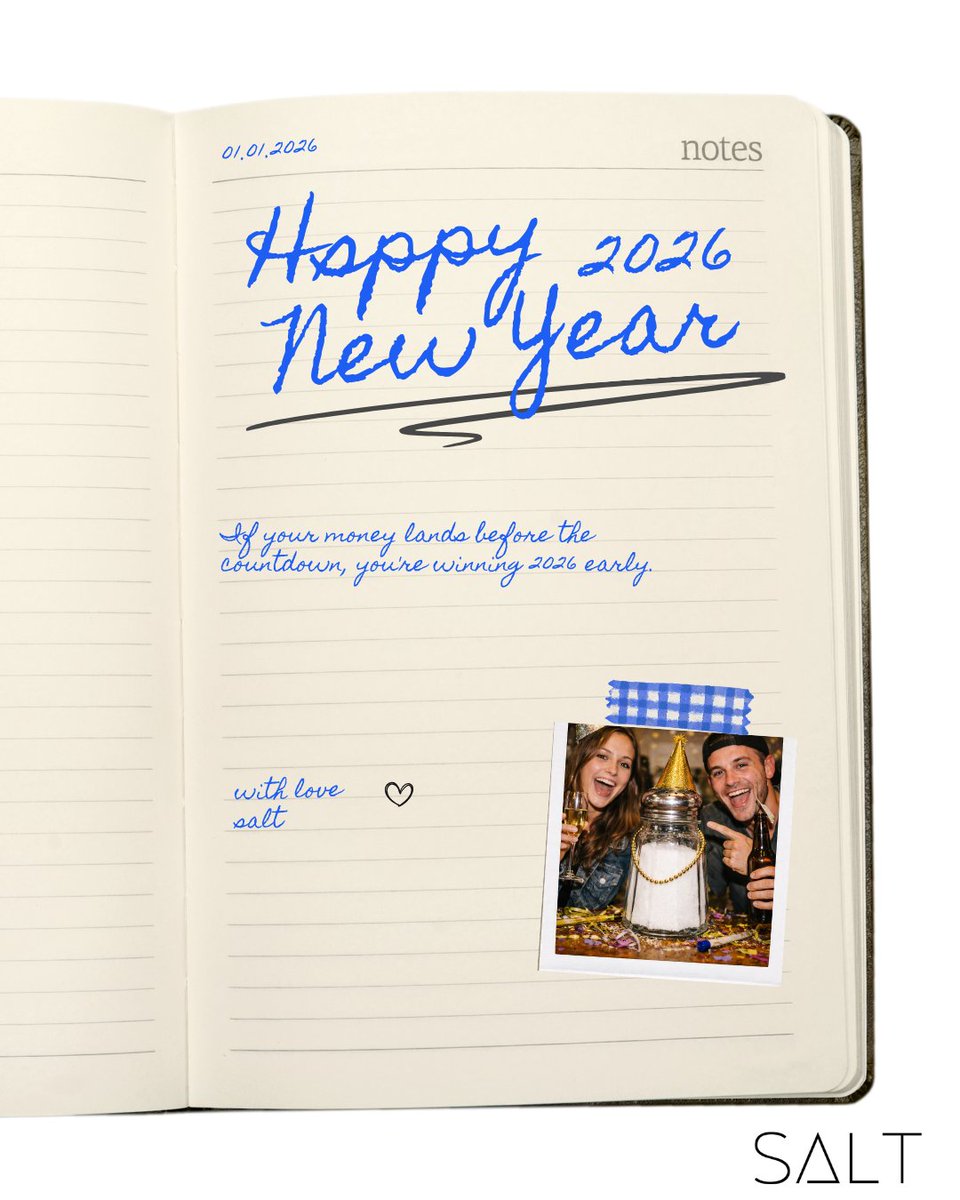 01.01.2026
notes
Happy 2026
New Year
If your money lands before the
countdown, you're winning 2026 early.
with love
salt
SALT